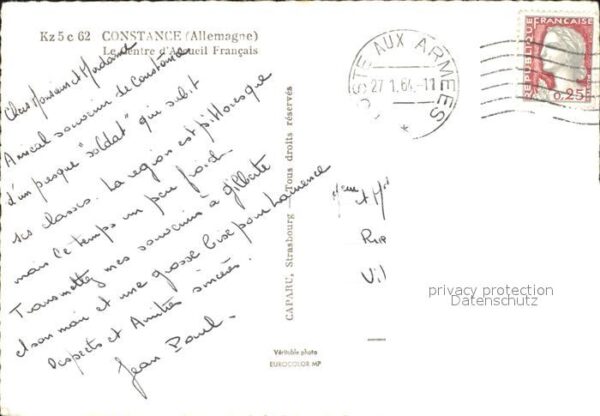 Kz 5 c 62 CONSTANCE (Allemagne)
Le Centre d'Accueil Français
Chers Monsieur et Madame
Amical souvenir de Constance
d'un presque "soldat" qui subit
ses classes. La region est pittoresque
mais le temps un peu froid.
Transmettez mes souvenirs à Gilberte
et son mari et une grosse bise pour Laurence
Respects et Amitiés sincères.
Jean Paul.
CAPARU, Strasbourg — Tous droits réservés
Véritable photo
EUROCOLOR MP
POSTE AUX ARMEES
27 1. 64. -11
*
REPUBLIQUE
FRANÇAISE
POSTES
0,25F
et Mr
Rue
Vil
privacy protection
Datenschutz